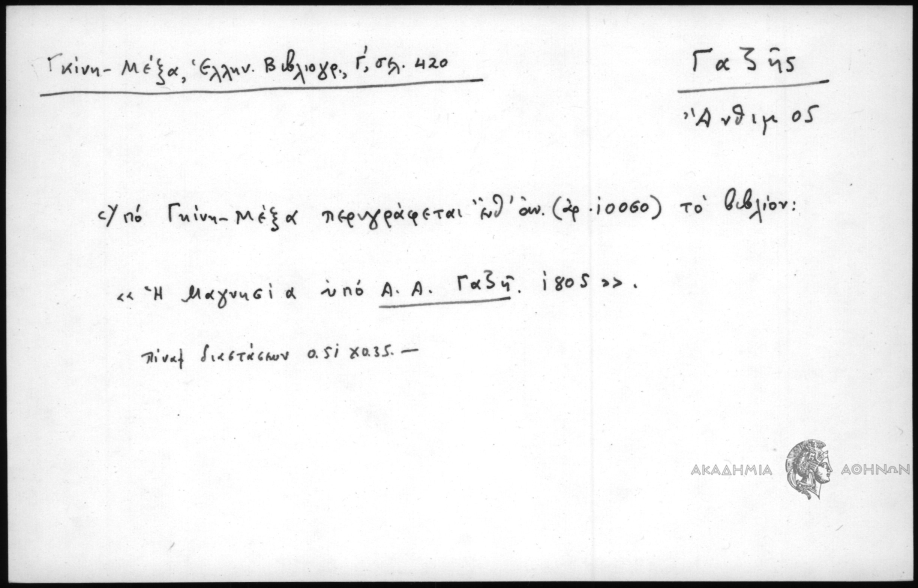 Γκίνη-Μέξα, Ἑλλην. Βιβλιογρ., Γ', σελ. 420
Γαζῆς
Ἄνθιμος
Ὑπό Γκίνη-Μέξα περιγράφεται ἐνθ' ἀν. (ἀρ. 10050) τό βιβλίον:
«Ἡ Μαγνησία ὑπό Α. Α. Γαζῆ. 1805».
πίναξ διαστάσεων 0.51 χ 0.35. —
ΑΚΑΔΗΜΙΑ ΑΘΗΝΩΝ